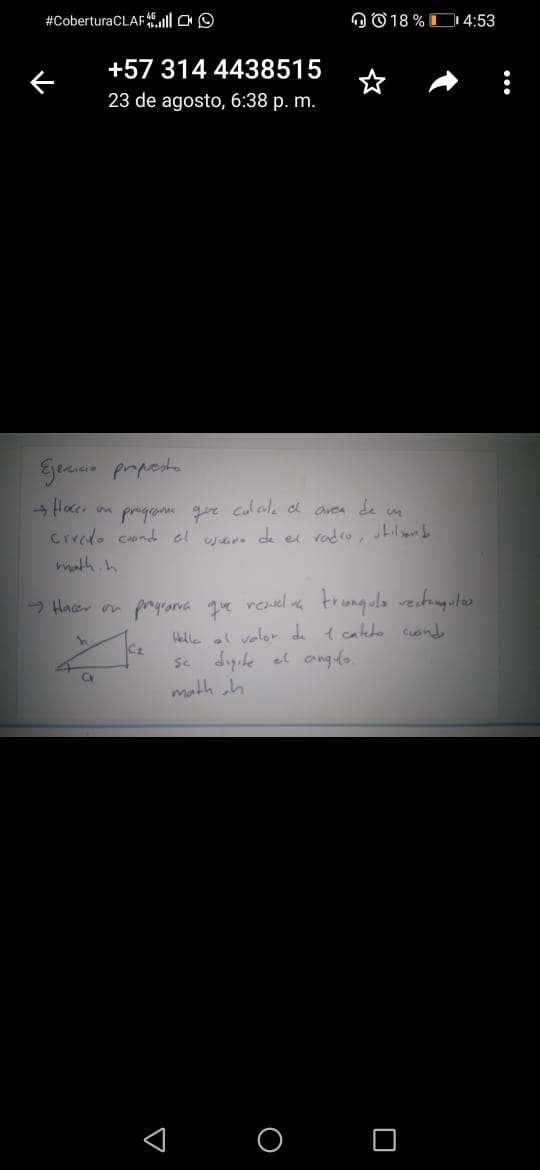 #CoberturaCLAR 4G 18 % 4:53
+57 314 4438515
23 de agosto, 6:38 p. m.
Ejercicio propuesto
→ Hacer un programa que calcule el area de un
circulo cuando el usuario de el radio, utilizando
math.h
→ Hacer un programa que resuelva triangulo rectangulos
h C2 Halle el valor de 1 cateto cuando
se digite el angulo.
C1
math.h